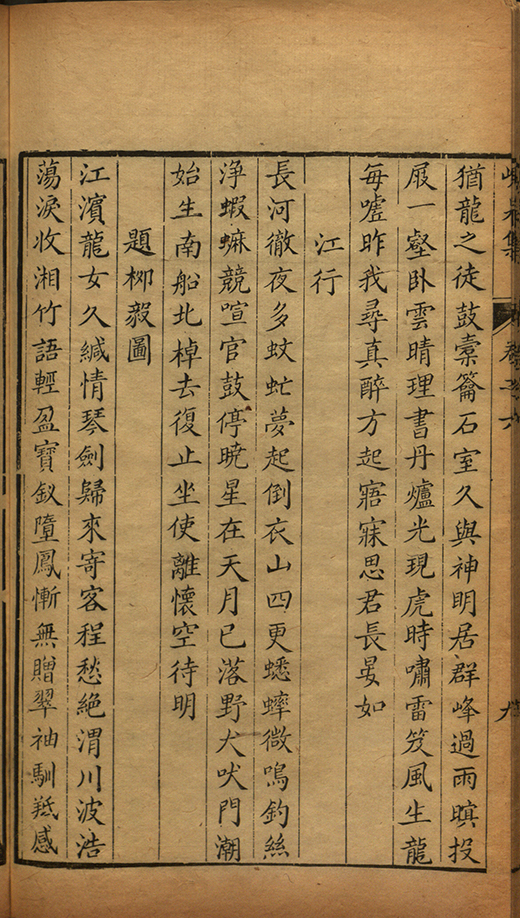 猶龍之徒鼓橐籥石室久與神明居群峰過雨暝投
屐一壑臥雲晴理書丹爐光現虎時嘯雷笈風生龍
每噓昨我尋真醉方起寤寐思君長晏如
江行
長河徹夜多蚊虻夢起倒衣山四更蟋蟀微鳴釣絲
淨蝦蟆競喧官鼓停曉星在天月已落野犬吠門潮
始生南船北棹去復止坐使離懷空待明
題柳毅圖
江濱龍女久緘情琴劍歸來寄客程愁絕渭川波浩
蕩淚收湘竹語輕盈寶釵墮鳳慚無贈翠袖馴羝感